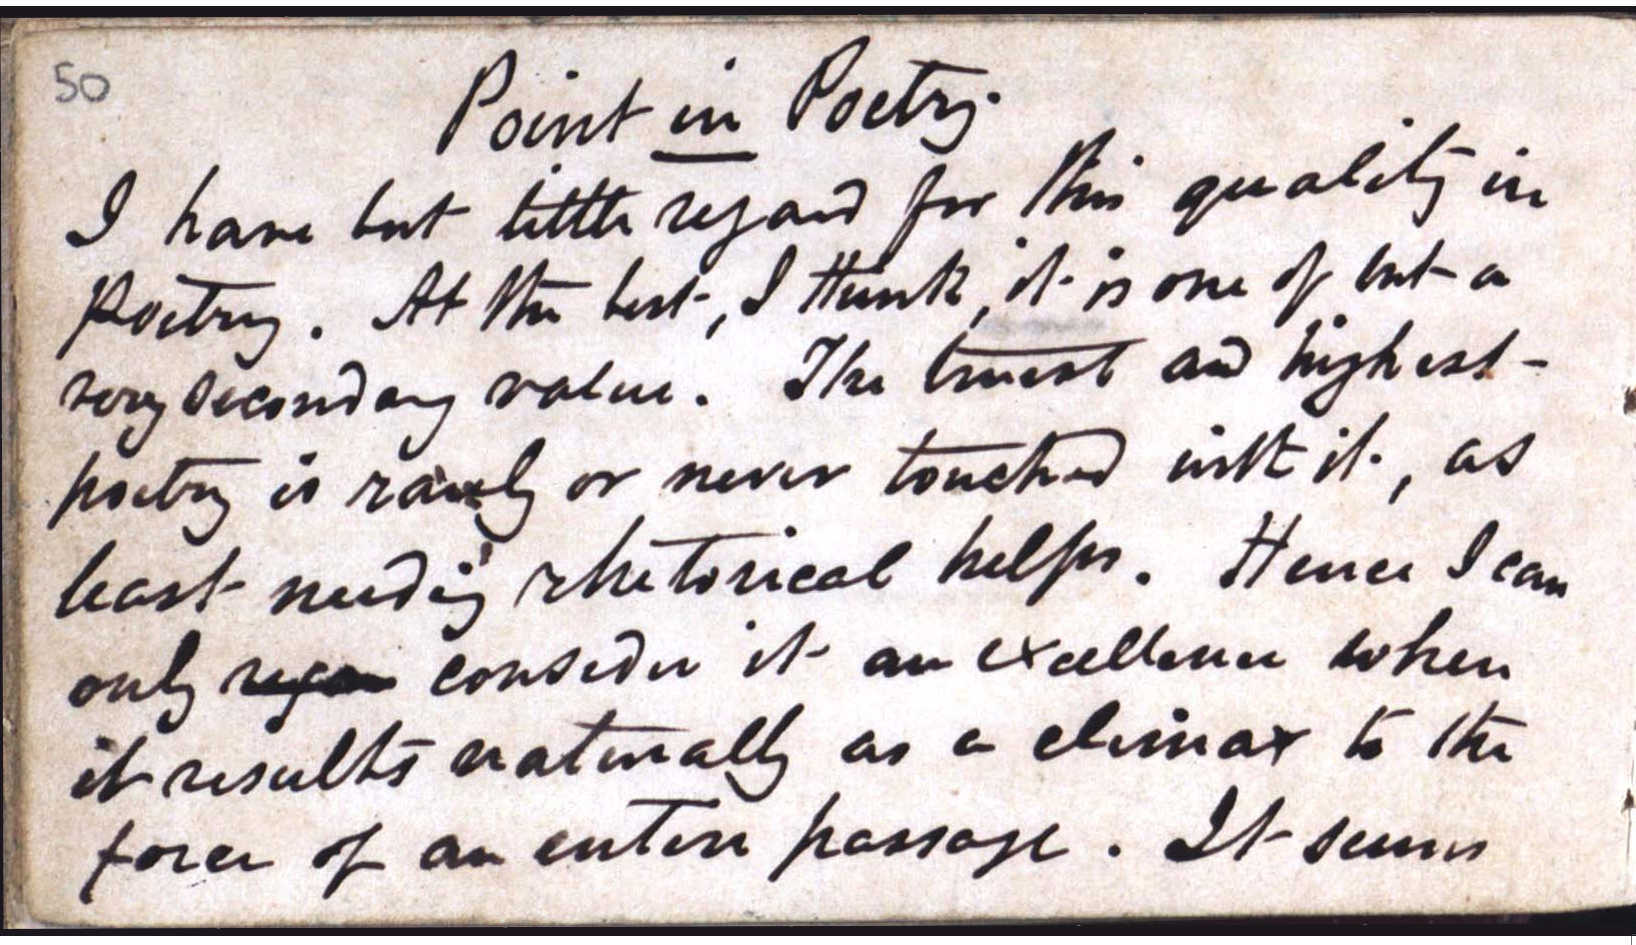 50
Point in Poetry.
I have but little regard for this quality in
Poetry. At the best, I think, it is one of but a
very secondary value. The truest and highest
poetry is rarely or never touched with it, as
least needing rhetorical helps. Hence I can
only consider it an excellence when
it results naturally as a climax to the
force of an entire passage. It seems